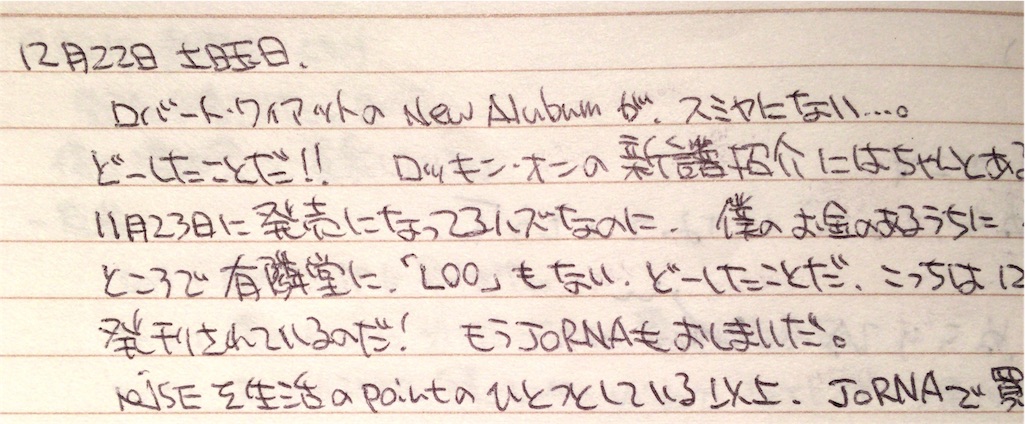 12月22日 土曜日.
ロバート・ワイアットの New Alubum が、スミヤにない…。
どーしたことだ!! ロッキン・オンの新譜紹介にはちゃんとある
11月23日に発売になってるハズなのに. 僕のお金のあるうちに
ところで有隣堂に、「LOO」もない. どーしたことだ、こっちは12
発刊されているのだ! もうJORNAもおしまいだ。
NOiSEを生活のpointのひとつとしている以上、JORNAで買